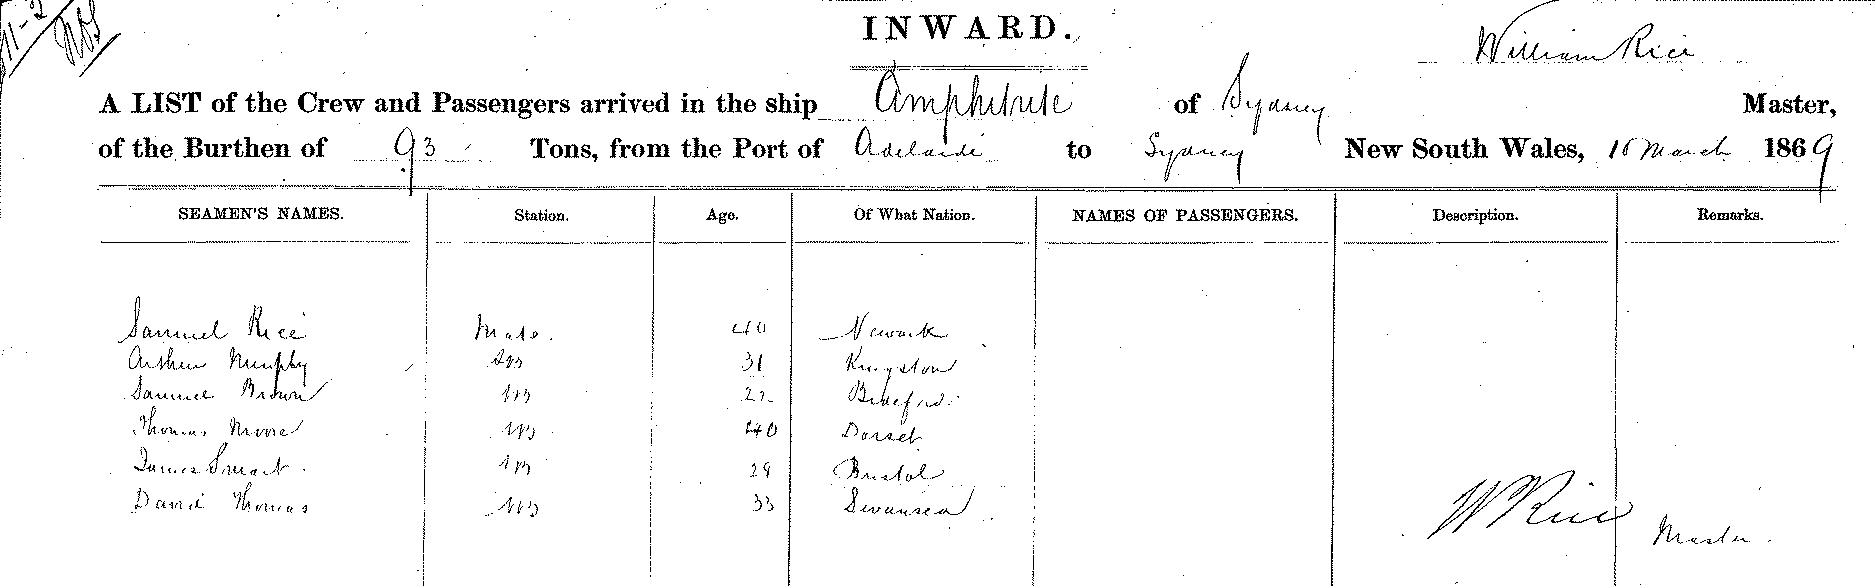 INWARD.
William Rice
A LIST of the Crew and Passengers arrived in the ship Amphitrite of Sydney Master,
of the Burthen of 93 Tons, from the Port of Adelaide to Sydney New South Wales, March 1869
SEAMEN'S NAMES. Station. Age. Of What Nation. NAMES OF PASSENGERS. Description. Remarks.
Samuel Rice Mate. 40 Newark
Arthur Murphy AB 31 Kingston
Samuel Brown AB 22 Bideford
Thomas Moore AB 40 Dorset
James Smart AB 29 Bristol
David Thomas AB 33 Swansea
W Rice Master